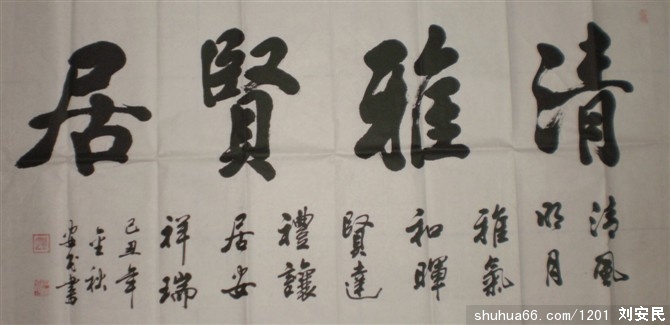 清雅賢居
清風
明月
雅氣
和暉
賢達
禮讓
居安
祥瑞
己丑年
金秋
安民書
shuhua66.com/1201 刘安民